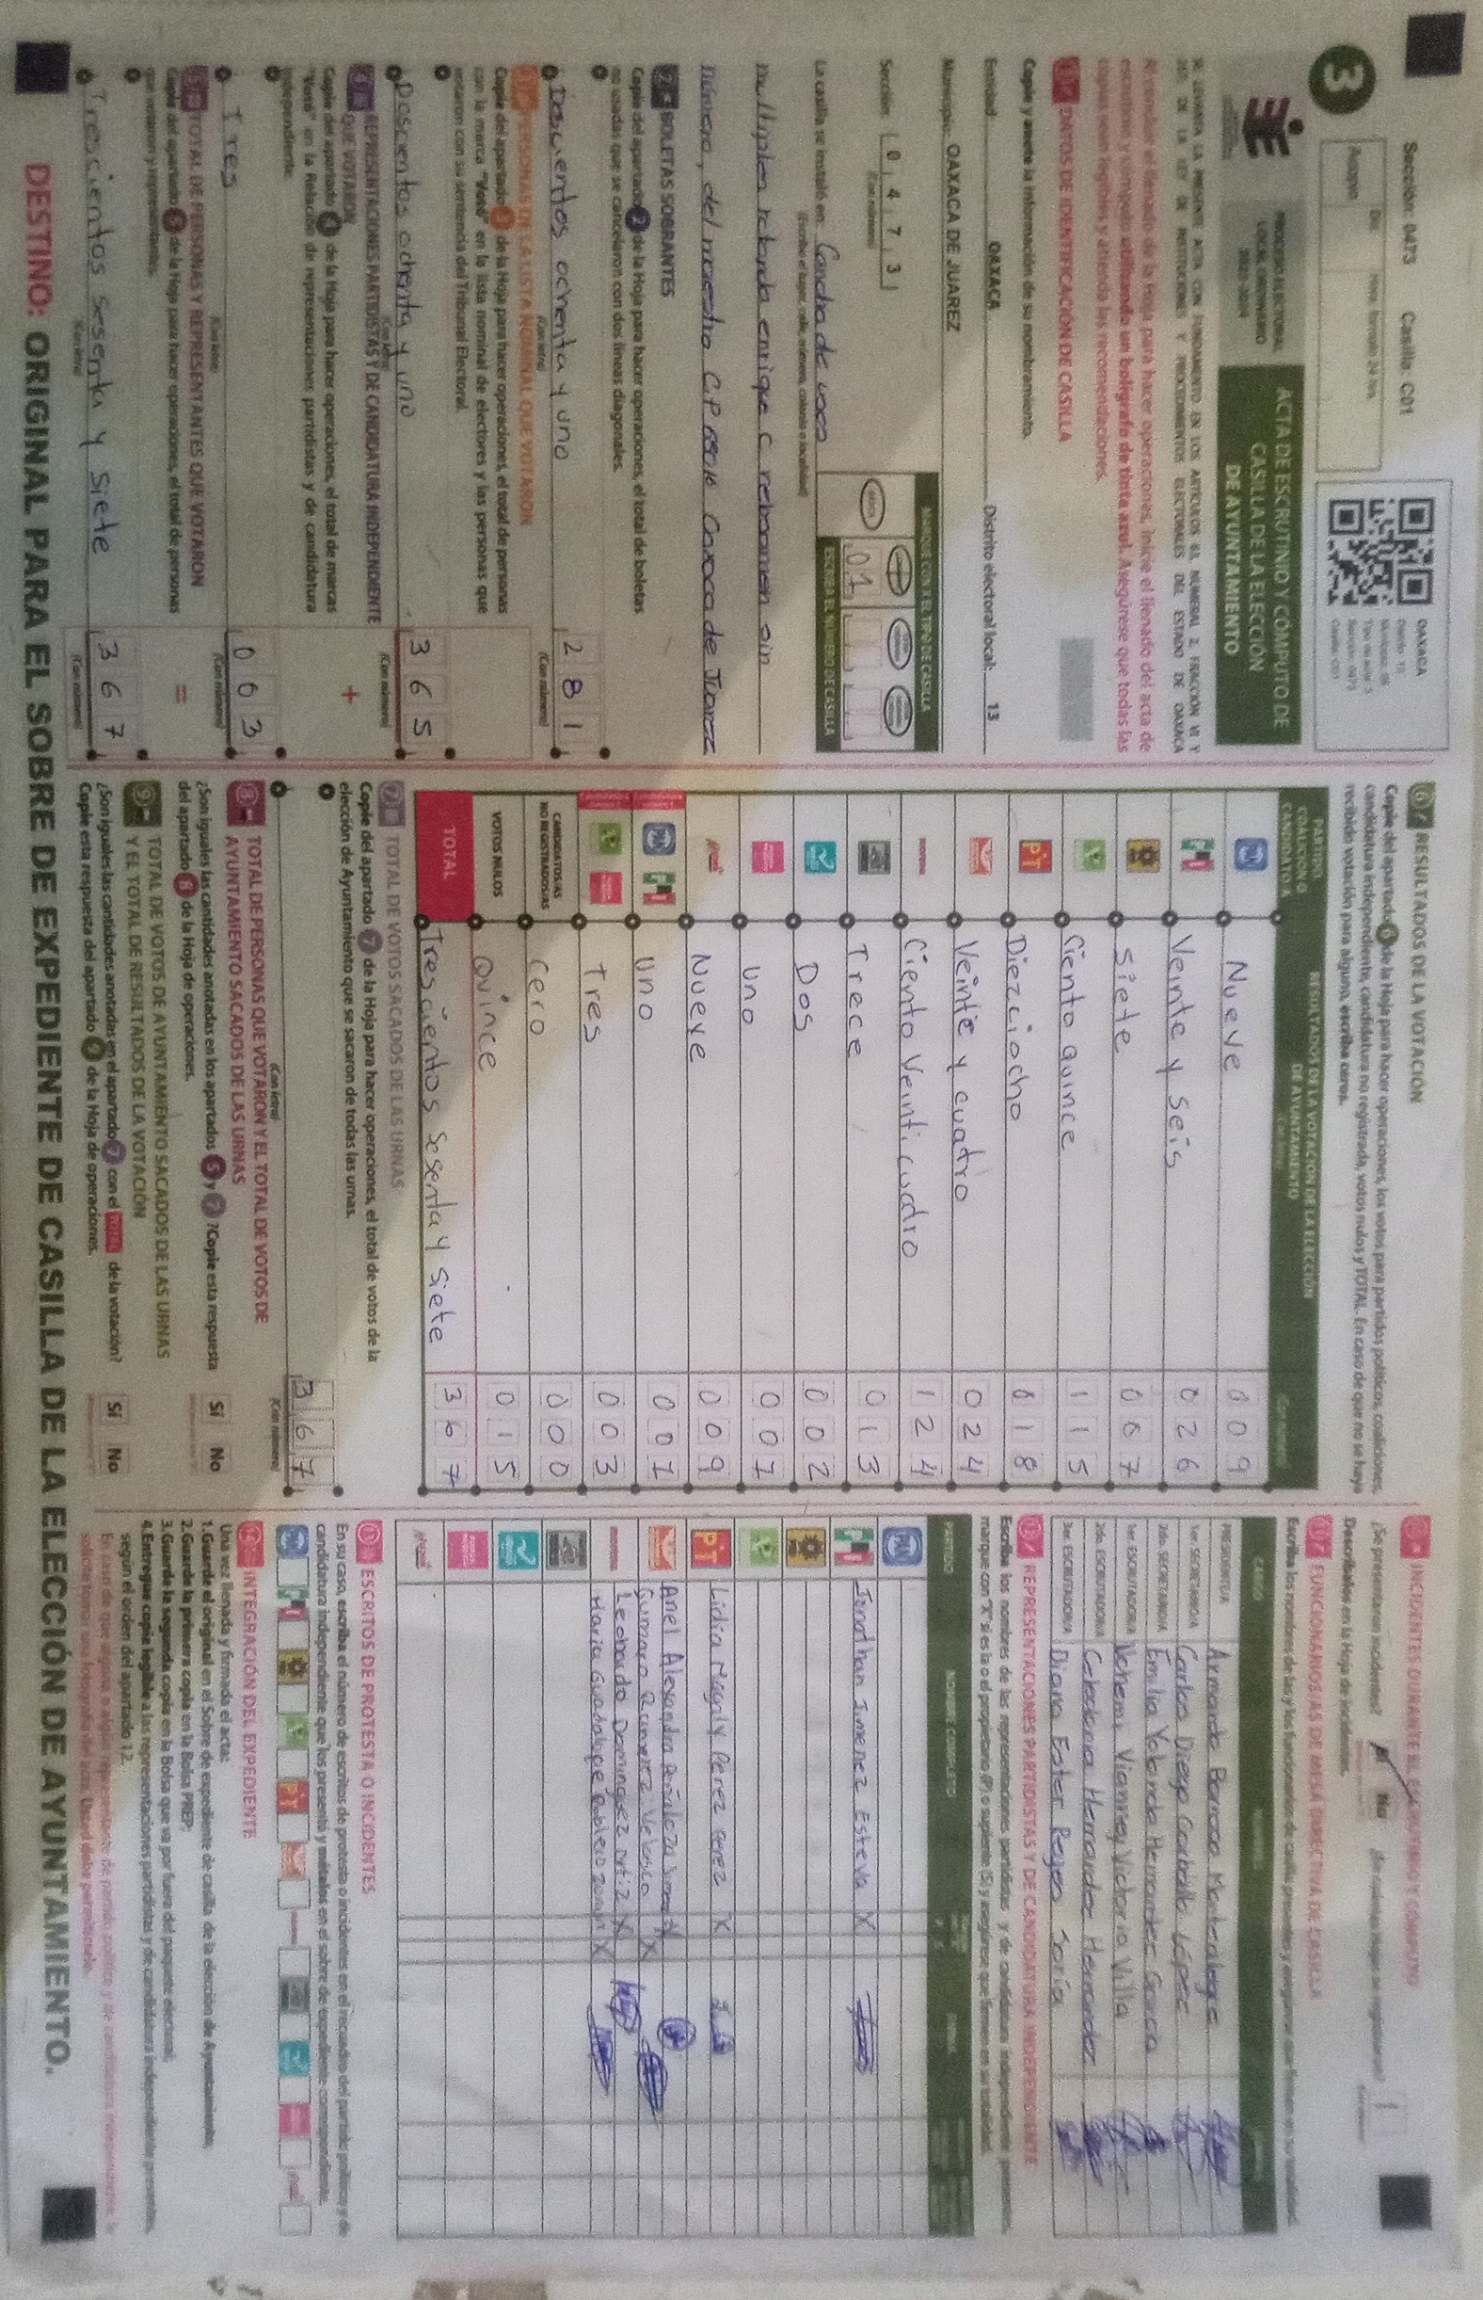 Sección: 0473 Casilla: C01
3
OAXACA
PROCESO ELECTORAL
LOCAL ORDINARIO
2023-2024
ACTA DE ESCRUTINIO Y CÓMPUTO DE
CASILLA DE LA ELECCIÓN
DE AYUNTAMIENTO
SE LEVANTA LA PRESENTE ACTA CON FUNDAMENTO EN LOS ARTÍCULOS
Al concluir el llenado de la Hoja para hacer operaciones, inicie el llenado del acta de
escrutinio y cómputo utilizando un bolígrafo de tinta azul. Asegúrese que todas las
copias sean legibles y atienda las recomendaciones.
DATOS DE IDENTIFICACIÓN DE CASILLA
Copie y anote la información de su nombramiento.
Entidad: OAXACA Distrito electoral local: 13
Municipio: OAXACA DE JUAREZ
Sección: 0 4 7 3
(Con número)
MARQUE CON X EL TIPO DE CASILLA
01
ESCRIBA EL NÚMERO DE CASILLA
La casilla se instaló en: Cancha de usos
(Escriba el lugar, calle, número, colonia o localidad)
multiples rotonda enrique c rebsamen sin
número, del maestro C.P. Oaxaca de Juarez
2 BOLETAS SOBRANTES
Copie del apartado 2 de la Hoja para hacer operaciones, el total de boletas
no usadas que se cancelaron con dos líneas diagonales.
Doscientos ochenta y uno 2 8 1
(Con letra) (Con número)
3 PERSONAS DE LA LISTA NOMINAL QUE VOTARON
Copie del apartado 3 de la Hoja para hacer operaciones, el total de personas
con la marca "Votó" en la lista nominal de electores y las personas que
votaron con su sentencia del Tribunal Electoral.
Doscientos ochenta y uno 3 6 5
(Con letra) (Con número)
4 REPRESENTACIONES PARTIDISTAS Y DE CANDIDATURA INDEPENDIENTE
QUE VOTARON +
Copie del apartado 4 de la Hoja para hacer operaciones, el total de marcas
"Votó" en la Relación de representaciones partidistas y de candidatura
independiente.
Tres 0 0 3
(Con letra) (Con número)
5 TOTAL DE PERSONAS Y REPRESENTANTES QUE VOTARON =
Copie del apartado 5 de la Hoja para hacer operaciones, el total de personas
que votaron y representantes.
Trescientos sesenta y siete 3 6 7
(Con letra) (Con número)
6 RESULTADOS DE LA VOTACIÓN
Copie del apartado 6 de la Hoja para hacer operaciones, los votos para partidos políticos, coaliciones,
candidatura independiente, candidatura no registrada, votos nulos y TOTAL. En caso de que no se haya
recibido votación para alguno, escriba ceros.
PARTIDO, COALICIÓN O CANDIDATO/A
RESULTADOS DE LA VOTACIÓN DE LA ELECCIÓN
DE AYUNTAMIENTO
PAN Nueve 0 0 9
PRI Veinte y seis 0 2 6
Siete 0 0 7
Ciento quince 1 1 5
PT Diezciocho 0 1 8
Veinte y cuatro 0 2 4
morena Ciento Veinticuatro 1 2 4
Trece 0 1 3
Dos 0 0 2
Uno 0 0 1
Nueve 0 0 9
PAN PRI Uno 0 0 1
Tres 0 0 3
CANDIDATOS/AS NO REGISTRADOS/AS Cero 0 0 0
VOTOS NULOS Quince 0 1 5
TOTAL Trescientos sesenta y siete 3 6 7
7 TOTAL DE VOTOS SACADOS DE LAS URNAS
Copie del apartado 7 de la Hoja para hacer operaciones, el total de votos de la
elección de Ayuntamiento que se sacaron de todas las urnas.
3 6 7
(Con letra) (Con número)
8 TOTAL DE PERSONAS QUE VOTARON Y EL TOTAL DE VOTOS DE
AYUNTAMIENTO SACADOS DE LAS URNAS
¿Son iguales las cantidades anotadas en los apartados 5 y 7? Copie esta respuesta
del apartado 8 de la Hoja de operaciones. Sí No
9 TOTAL DE VOTOS DE AYUNTAMIENTO SACADOS DE LAS URNAS
Y EL TOTAL DE RESULTADOS DE LA VOTACIÓN
¿Son iguales las cantidades anotadas en el apartado 7 con el TOTAL de la votación?
Copie esta respuesta del apartado 9 de la Hoja de operaciones. Sí No
INCIDENTES DURANTE EL ESCRUTINIO Y CÓMPUTO
¿Se presentaron incidentes? No 1
Descríbalos en la Hoja de incidentes.
11 FUNCIONARIOS/AS DE MESA DIRECTIVA DE CASILLA
Escriba los nombres de las y los funcionarios de casilla presentes y asegúrese que firmen en su totalidad.
CARGO
PRESIDENTE/A Armando Barroso Montealegre
1er. SECRETARIO/A Carlos Diego Carballo López
2do. SECRETARIO/A Emilia Yolanda Hernandez Garcia
1er. ESCRUTADOR/A Nohemi Vianney Victoria Villa
2do. ESCRUTADOR/A Celedonia Hernandez Hernandez
3er. ESCRUTADOR/A Diana Ester Reyes Soria
12 REPRESENTACIONES PARTIDISTAS Y DE CANDIDATURA INDEPENDIENTE
Escriba los nombres de las representaciones partidistas y de candidatura independiente presentes,
marque con "X" si es la o el propietario (P) o suplente (S) y asegúrese que firmen en su totalidad.
PARTIDO NOMBRE COMPLETO
PAN
PRI Jonathan Jimenez Esteva X
PT Lidia Magaly Perez Perez X
Anel Alexandra Peñaloza X
Gumaro Ramirez Velasco X
Leobardo Dominguez Ortiz X
Maria Guadalupe X
13 ESCRITOS DE PROTESTA O INCIDENTES
En su caso, escriba el número de escritos de protesta o incidentes en el recuadro del partido político y de
candidatura independiente que los presentó y métalos en el sobre de expediente correspondiente.
INTEGRACIÓN DEL EXPEDIENTE
Una vez llenada y firmada el acta:
1. Guarde el original en el Sobre de expediente de casilla de la elección de Ayuntamiento;
2. Guarde la primera copia en la Bolsa PREP;
3. Guarde la segunda copia en la Bolsa que va por fuera del paquete electoral;
4. Entregue copia legible a las representaciones partidistas y de candidatura independiente presentes,
según el orden del apartado 12.
DESTINO: ORIGINAL PARA EL SOBRE DE EXPEDIENTE DE CASILLA DE LA ELECCIÓN DE AYUNTAMIENTO.